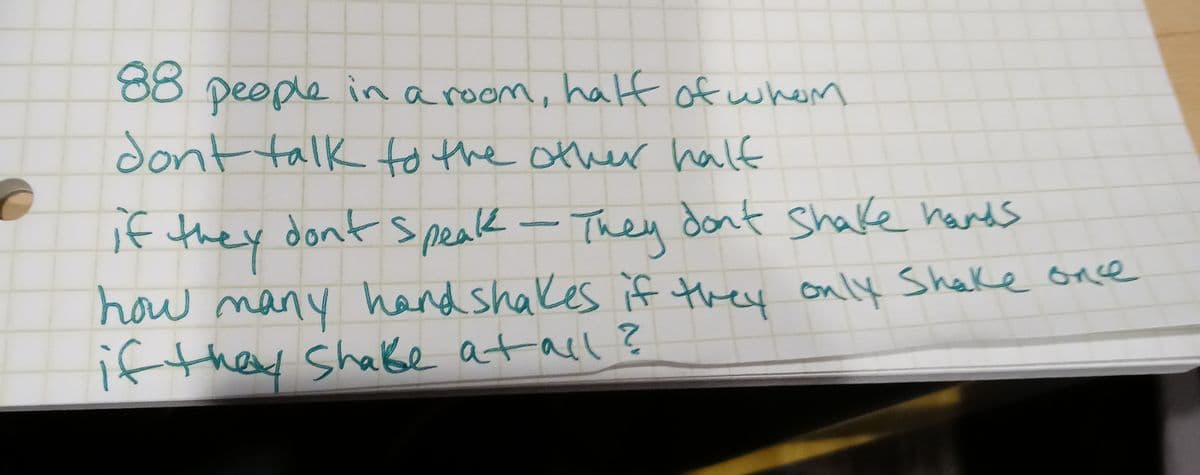 88 people in a room, half of whom
dont talk to the other half
if they dont speak - They dont shake hands
how many handshakes if they only shake once
if they shake at all ?